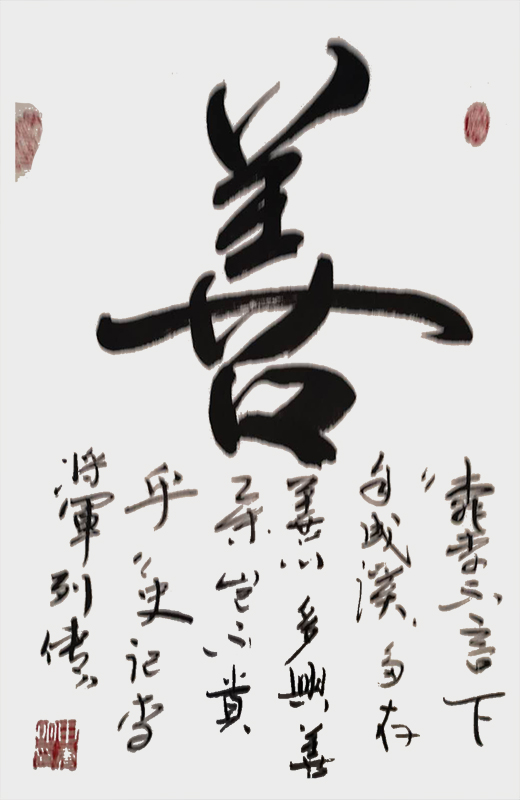 善
李不言下
自成溪多存
善心多興善
豈不貴
乎史記李
將軍列传